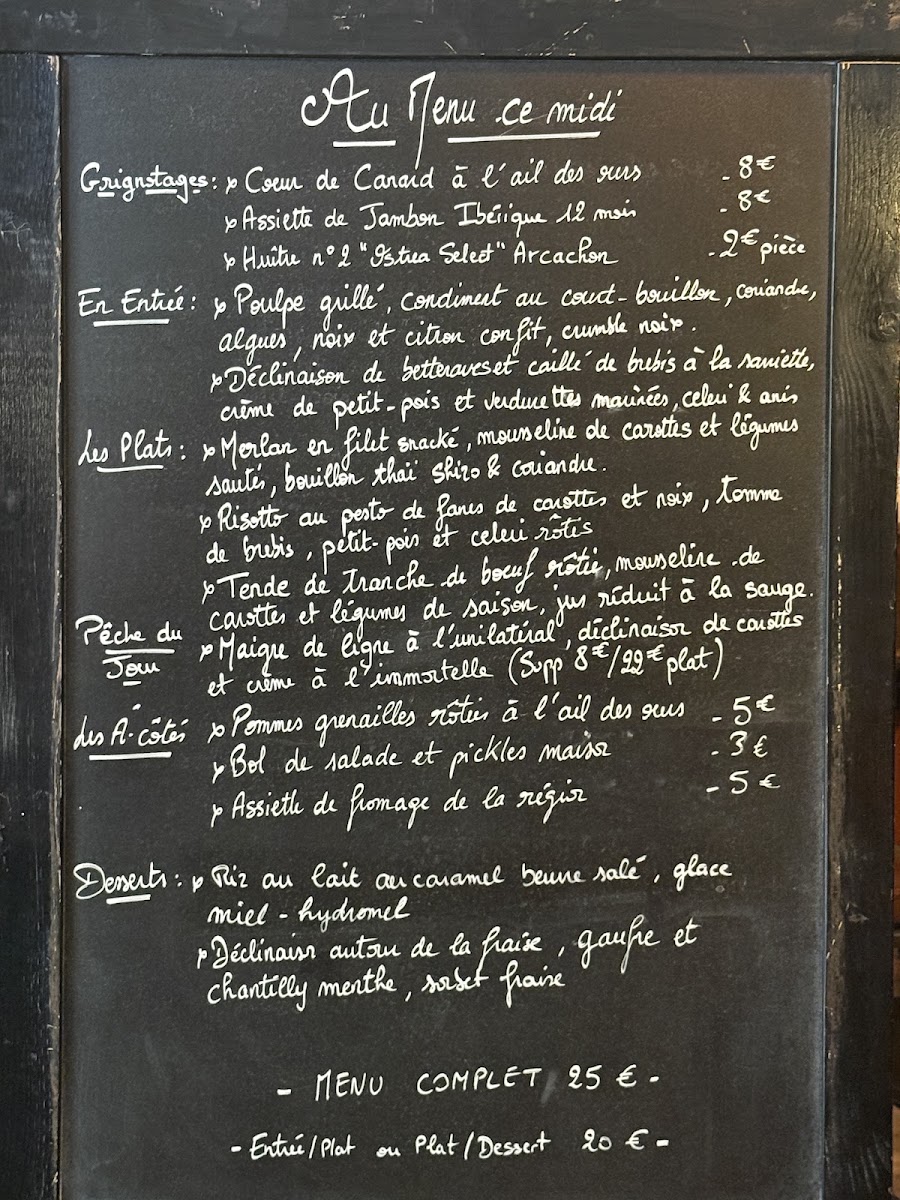 Au Menu ce midi
Grignotages : x Coeur de Canard à l'ail des ours - 8€
x Assiette de Jambon Ibérique 12 mois - 8€
x Huître n°2 "Ostrea Select" Arcachon - 2€ pièce
En Entrée : x Poulpe grillé, condiment au court-bouillon, coriandre,
algues, noix et citron confit, crumble noix.
x Déclinaison de betteraves et caillé de brebis à la sarriette,
crème de petit-pois et verdurettes marinées, celeri & anis
Les Plats : x Merlan en filet snacké, mousseline de carottes et légumes
sautés, bouillon thaï shiro & coriandre.
x Risotto au pesto de fanes de carottes et noix, tomme
de brebis, petit-pois et celeri rôtis
x Tende de tranche de boeuf rôtie, mousseline de
carottes et légumes de saison, jus réduit à la sauge.
Pêche du x Maigre de ligne à l'unilatéral, déclinaison de carottes
Jour et crème à l'immortelle (Supp 8€/22€ plat)
Les À-côtés x Pommes grenailles rôties à l'ail des ours - 5€
x Bol de salade et pickles maison - 3€
x Assiette de fromage de la région - 5€
Desserts : x Riz au lait au caramel beurre salé, glace
miel - hydromel
x Déclinaison autour de la fraise, gaufre et
chantilly menthe, sorbet fraise
- MENU COMPLET 25 € -
- Entrée/Plat ou Plat/Dessert 20 € -